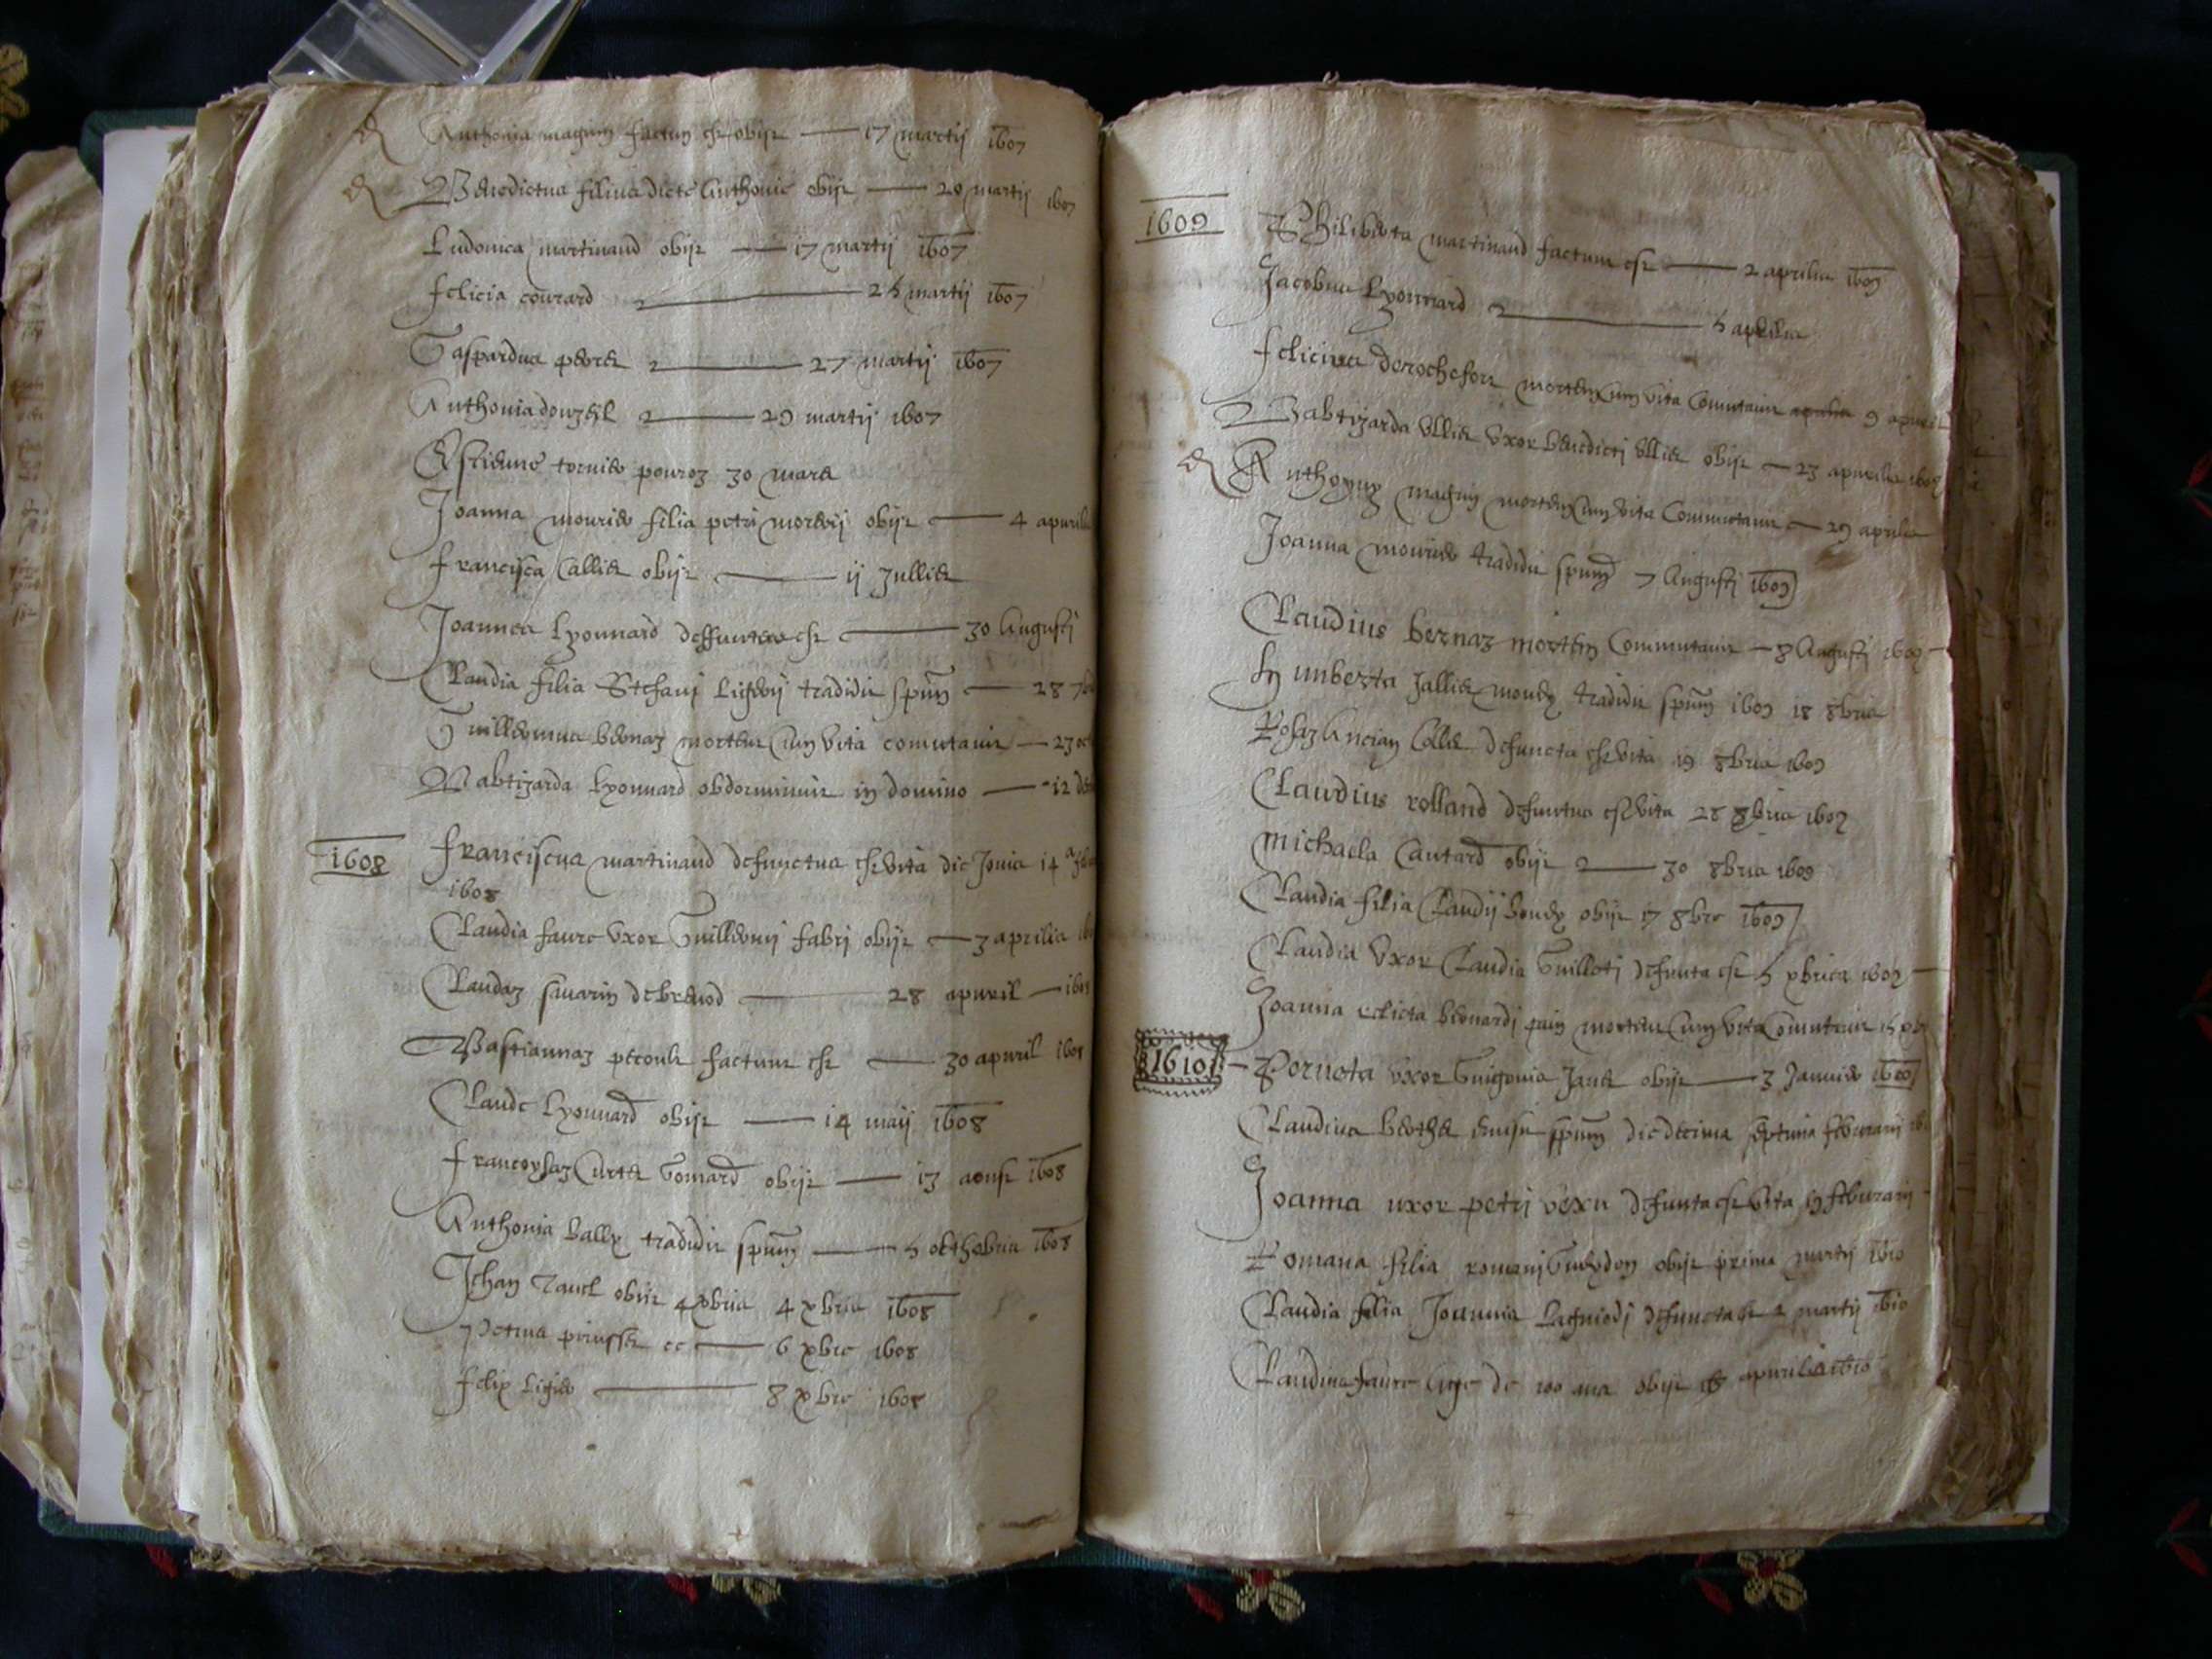 Anthonia magnin factum est obijt — 17 martij 1607
Benedictus filius dicte Anthonie obijt — 20 martij 1607
Ludovica martinand obijt — 17 martij 1607
felicia courard — 25 martij 1607
Gaspardus — 27 martij 1607
Anthonia — 29 martij 1607
Estienne tornier 30 mars
Joanna mourier filia petri morerij obijt — 4 aprilis
francisca Callies obijt — ij Jullies
Joannes Lyonnard deffunctus est — 30 Augusti
Claudia filia Stefani Ligerij tradidit spum — 28 7b
Guillermus bernaz mortem cum vita comutavit — 23 oc
Babtizarda Lyonnard obdormivit in domino — 12 de
1608 franciscus martinand defunctus est vita die Jovis 14
1608
Claudia faure uxor Guillermi fabri obijt — 3 aprilis
Claudaz savarin de brenod — 28 apvril — 1608
Bastiannaz factum est — 30 apvril 1608
Claude Lyonnard obijt — 14 maij 1608
francoysaz Curtes Gonnard obijt — 13 aoust 1608
Anthonia bally tradidit spum — 5 octhobris 1608
Jehan obijt 4 xbris 4 xbris 1608
Petrus — 6 xbre 1608
felix Ligier — 8 xbre 1608
1609 Philiberta martinand factum est — 2 aprilis 1609
Jacobus Lyonnard — 5 aprilis
felicius de rochefort mortem cum vita Comutavit 9 apvril
Babtizarda ullies uxor benedicti ullies obijt — 23 apvrilis 1609
Anthonius magnin mortem cum vita Commutavit — 29 aprilis
Joanna mourier tradidit spum 7 Augusti 1609
Claudius bernaz mortem Commutavit — 8 Augusti 1609
humberta Jallies tradidit spum 1609 18 8bris
Collet defuncta est vita 19 8bris 1609
Claudius rolland defunctus est vita 28 8bris 1609
michaela Cautard obijt — 30 8bris 1609
Claudia filia Claudij obijt 17 8bre 1609
Claudia uxor Claudii Guilloti defuncta est 5 xbris 1609
Joanna relicta bernardi mortem cum vita Comutavit 15 xb
1610 — Perneta uxor Guigonis Janes obijt — 3 Januier 1610
Claudius emisit spum die decima septima februarij
Joanna uxor petri vexu defuncta est vita 19 februarij
Romana filia romani obijt prima martij 1610
Claudia filia Joannis defuncta est 2 martij 1610
Claudius faure de 100 ans obijt apvrilis 1610